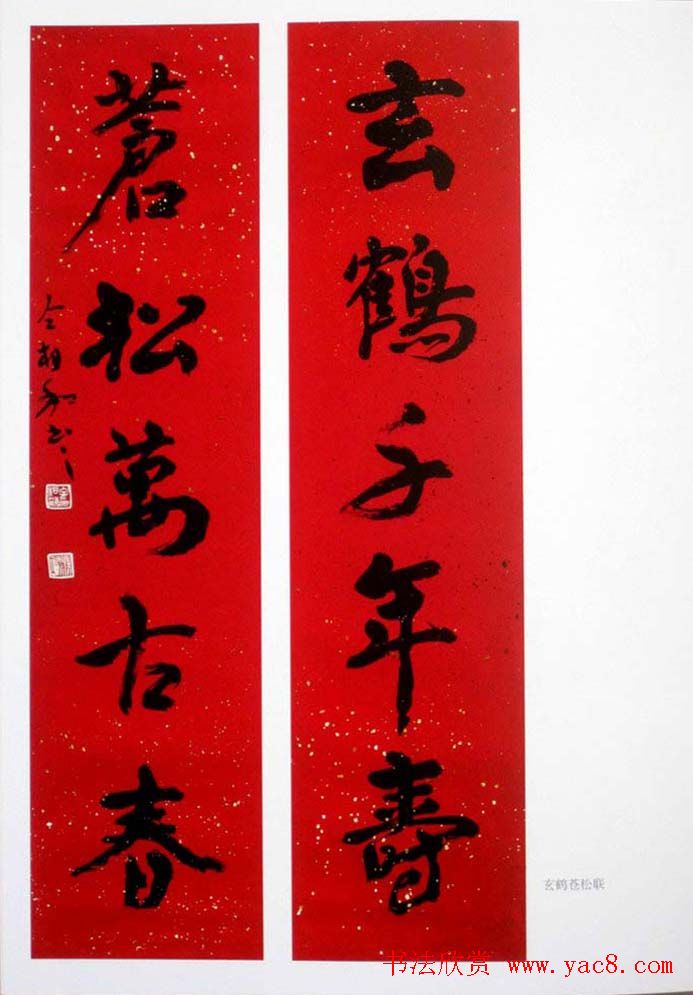 玄鶴千年壽
蒼松萬古春
玄鹤苍松联
书法欣赏 www.yac8.com